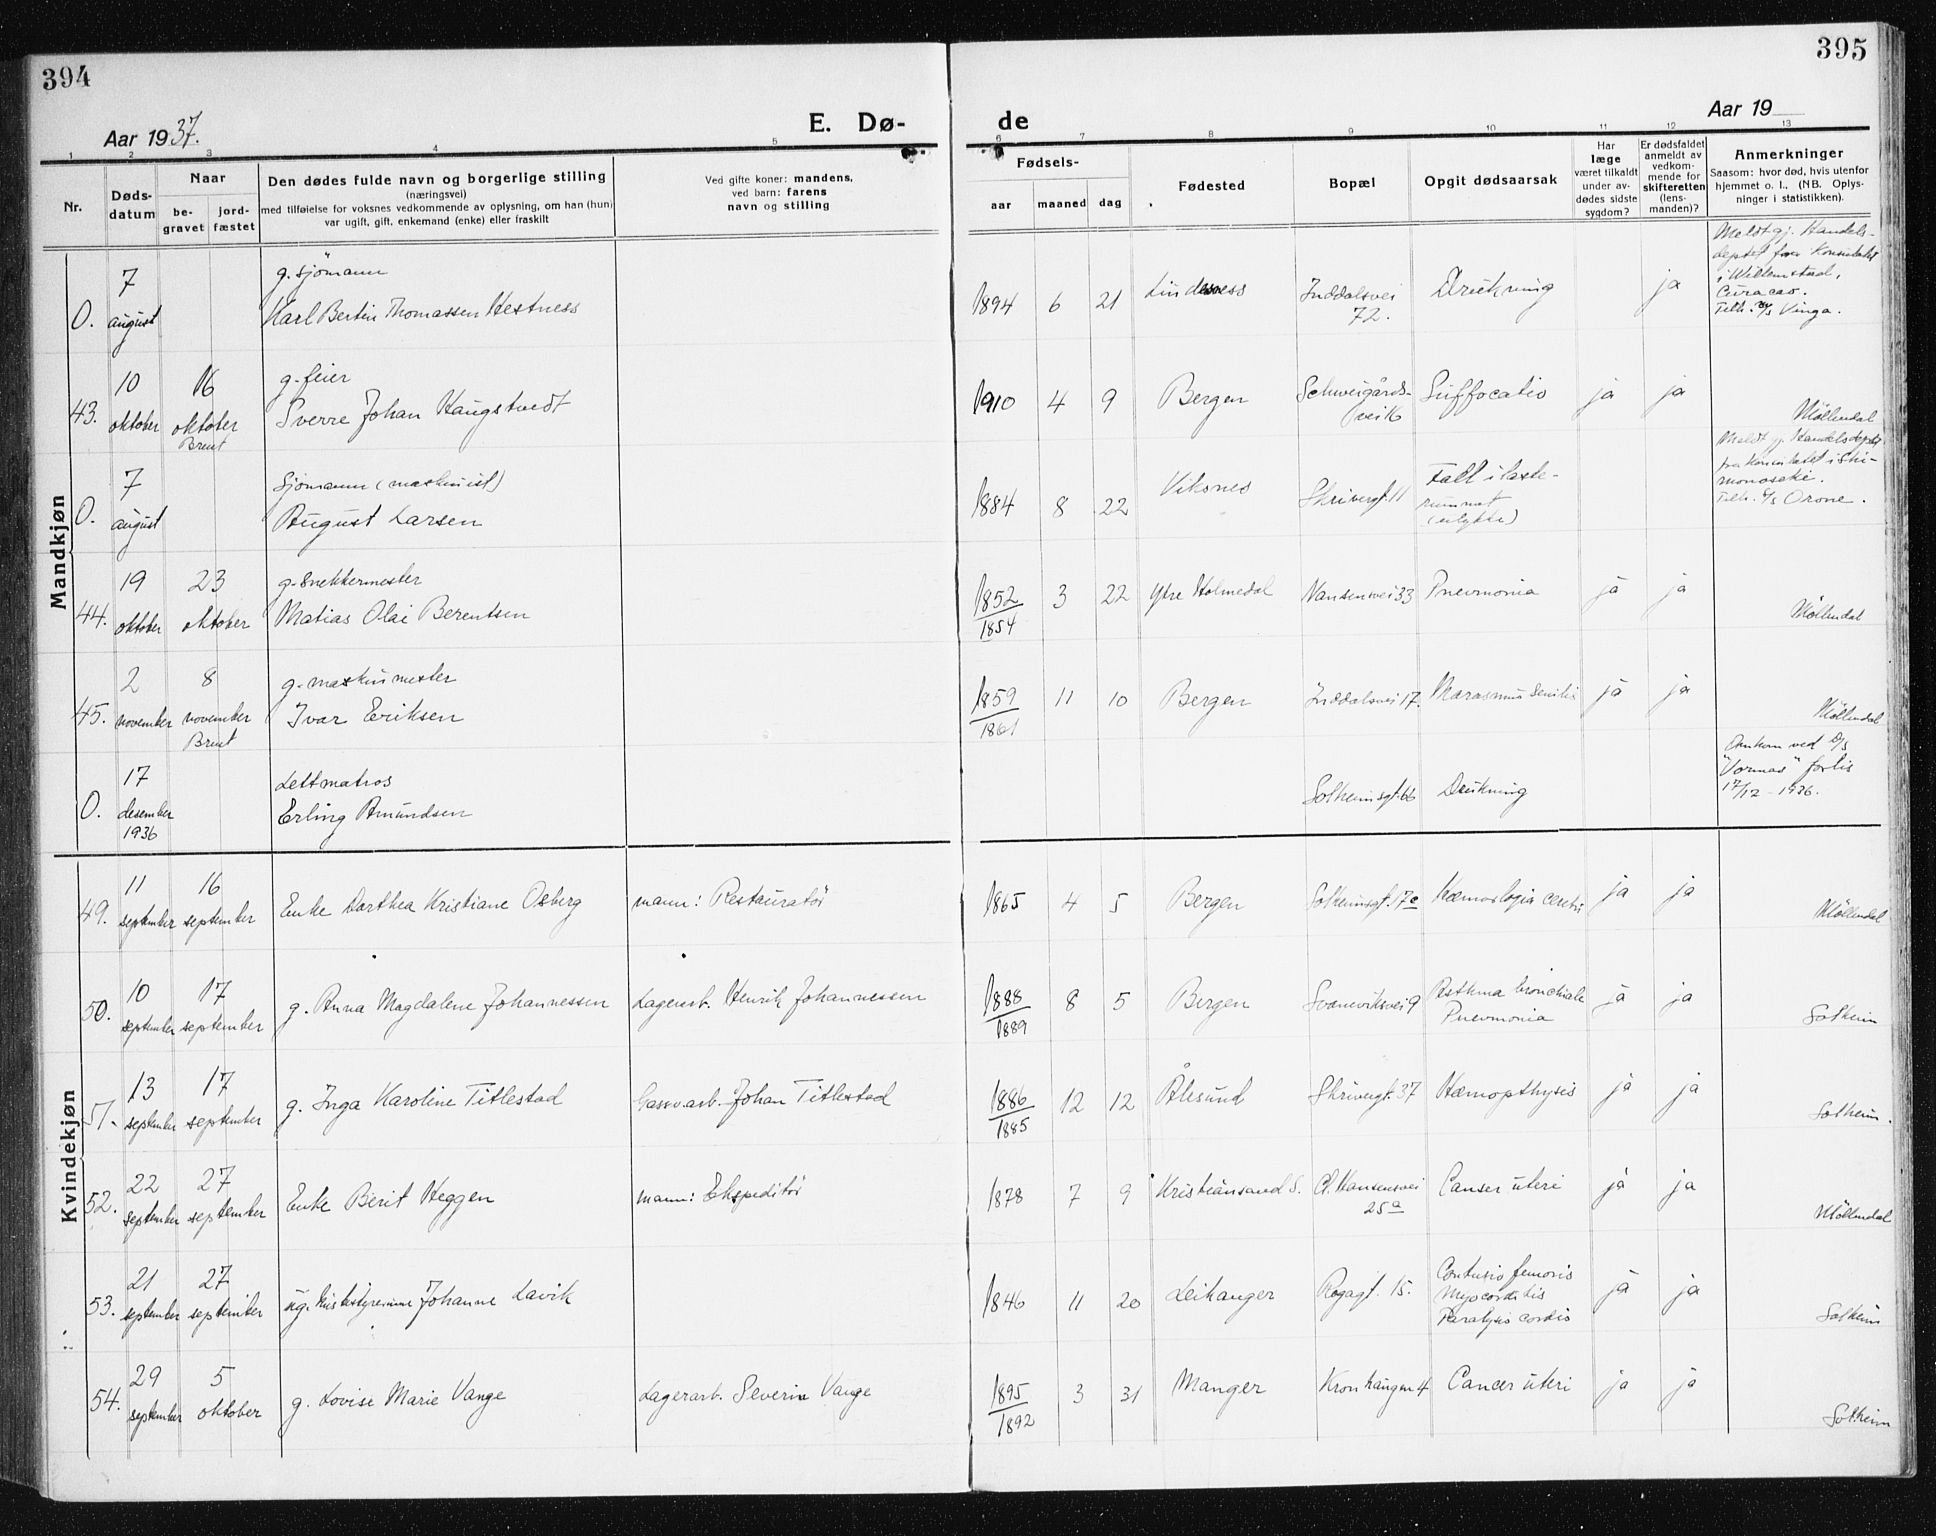 394
395
Aar 1937.
E. Dø-
de
Aar 19
1 2 3 4 5 6 7 8 9 10 11 12 13
Nr.
Døds-
datum
Naar
be-
gravet
jord-
fæstet
Den dødes fulde navn og borgerlige stilling
(næringsvei)
med tilføielse for voksnes vedkommende av oplysning, om han (hun)
var ugift, gift, enkemand (enke) eller fraskilt
Ved gifte koner: mandens,
ved barn: farens
navn og stilling
Fødsels-
aar maaned dag
Fødested
Bopæl
Opgit dødsaarsak
Har
læge
været tilkaldt
under av-
dødes sidste
sygdom?
Er dødsfaldet
anmeldt av
vedkom-
mende for
skifteretten
(lens-
manden)?
Anmerkninger
Saasom: hvor død, hvis utenfor
hjemmet o. l., (NB. Oplys-
ninger i statistikken).
Mandkjøn
0. 7 august g. sjömann
Karl Bertin Thomassen Hestness
1894 6 21 Lindesness Inddalsvei 72. Drukning ja
Meldt gj. Handels-
deptet fra Konsulatet
i Willemstad,
Curacao.
Tilh. m/s Vinga.
43. 10 oktober 16 oktober Brent g. feier
Sverre Johan Haugstvedt
1910 4 9 Bergen Schweigårds-
vei 16 Suffocatio ja ja Möllendal
0. 7 august Sjömann (maskinist)
August Larsen
1884 8 22 Viksnes Skrivergt. 11 Fall i laste-
rummet
(ulykke)
Meldt gj. Handelsdeptet
fra Konsulatet i Shi-
monoseki.
Tilh. s/s Orone.
44. 19 oktober 23 oktober g. snekkermester
Matias Olai Berentsen
1852
1854 3 22 Ytre Holmedal Nansensvei 33 Pneumonia ja ja Möllendal
45. 2 november 8 november Brent g. maskinmester
Ivar Eriksen
1859
1861 11 10 Bergen Inddalsvei 17. Marasmus senilis ja ja Möllendal
0. 17 desember 1936 Lettmatros
Erling Amundsen
Solheimsgt. 66 Drukning
Omkom ved D/S
"Vormas" forlis
17/12 - 1936.
Kvindekjøn
49. 11 september 16 september Enke Dorthea Kristiane Osberg mann: Restauratör
1865 4 5 Bergen Solheimsgt. 17c Hæmorlogia cerebri ja ja Möllendal
50. 10 september 17 september g. Anna Magdalene Johannessen Lagerarb. Henrik Johannessen
1888
1889 8 5 Bergen Svaneviksvei 9 Asthma bronchiale
Pneumonia ja ja Solheim
51. 13 september 17 september g. Inga Karoline Titlestad Gassv.arb. Johan Titlestad
1886
1885 12 12 Ålesund Skrivergt. 37 Hæmopthysis ja ja Solheim.
52. 22 september 27 september Enke Berit Heggen mann: Ekspeditör
1878 7 9 Kristiansand S. Cl. Hansensvei
25a Canser uteri ja ja Möllendal
53. 21 september 27 september ug. husbestyrerinne Johanne Lavik
1846 11 20 Leikanger Rogagt. 15. Contusio femoris
Myocarditis
Paralysis cordis ja ja Solheim
54. 29 september 5 oktober g. Lovise Marie Vange Lagerarb. Severin Vange
1895
1892 3 31 Manger Kronhaugen 4 Cancer uteri ja ja Solheim